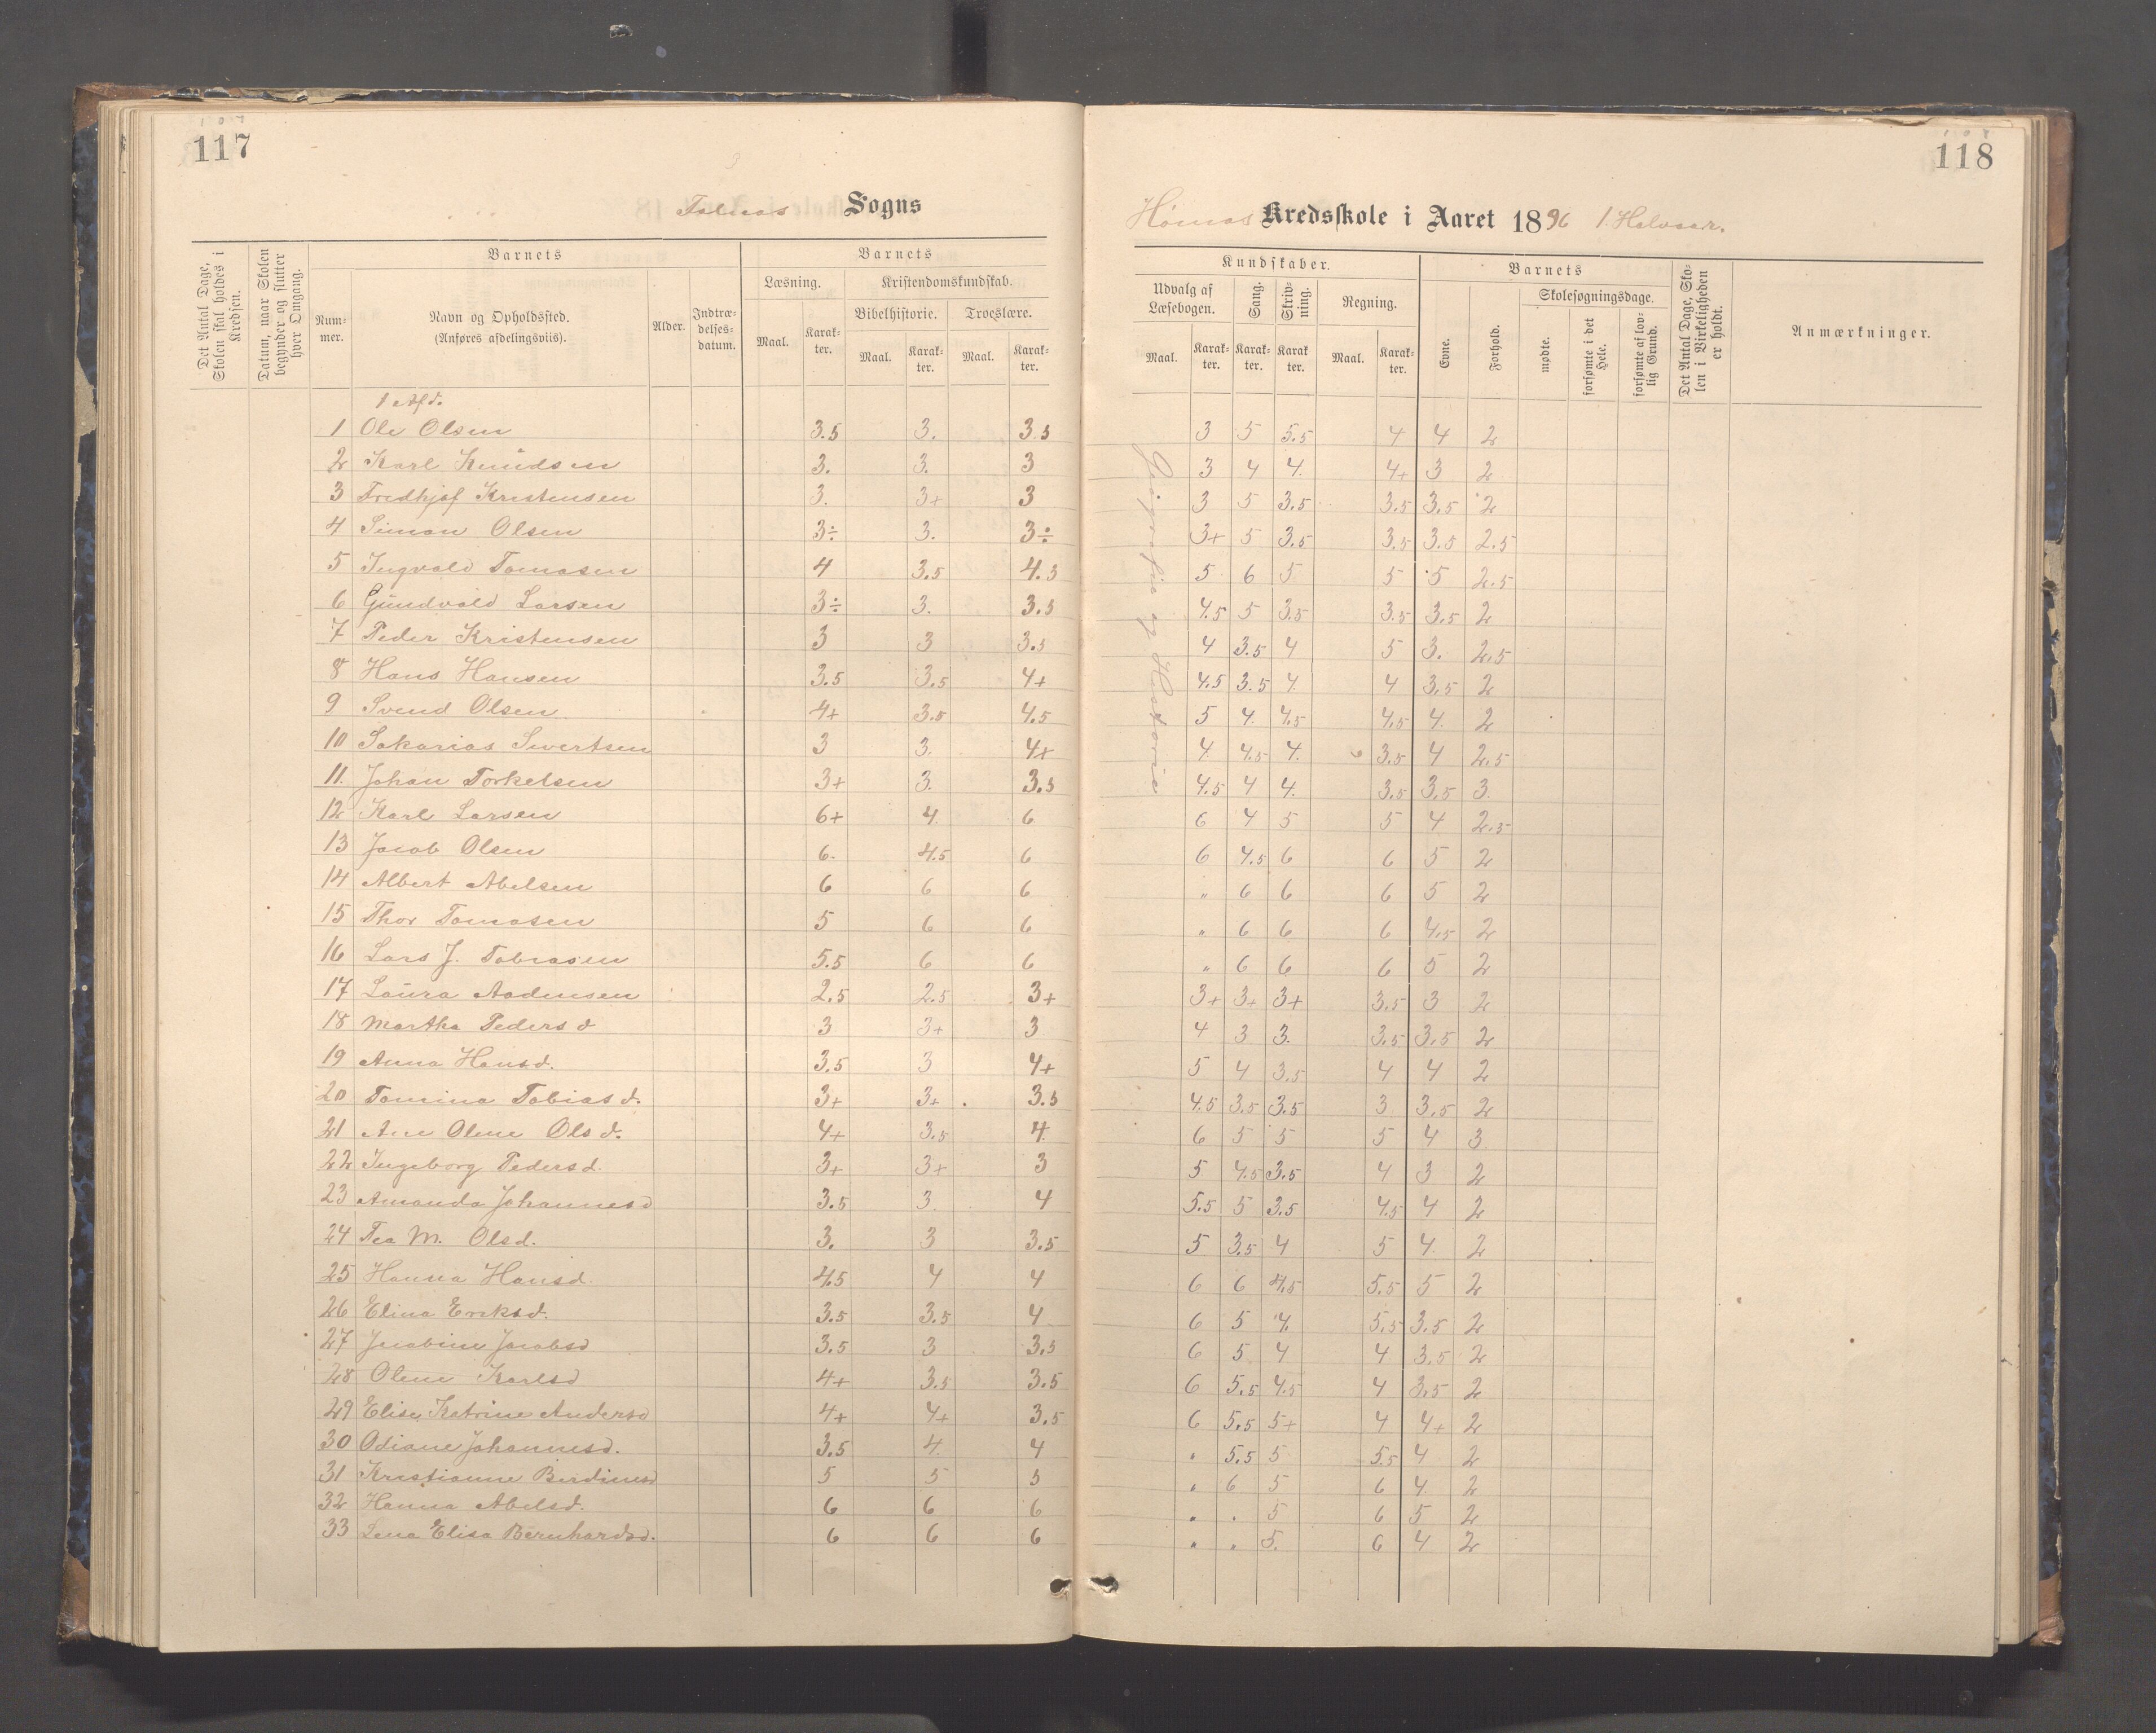 117
Falnes Sogns
Det Antal Dage, Skolen skal holdes i Kredsen.
Datum, naar Skolen begynder og slutter hver Omgang.
Barnets
Barnets
Num-mer.
Navn og Opholdssted.
(Anføres afdelingsviis).
Alder.
Indtræ-delses-datum.
Læsning.
Kristendomskundskab.
Bibelhistorie.
Troeslære.
Maal.
Karak-ter.
Maal.
Karak-ter.
Maal.
Karak-ter.
1 Afd.
1 Ole Olsen 3.5 3. 3.5
2 Karl Knudsen 3. 3. 3
3 Fredhjof Kristensen 3. 3+ 3
4 Simon Olsen 3÷ 3. 3÷
5 Ingvald Tomasen 4 3.5 4.5
6 Gundvald Larsen 3÷ 3. 3.5
7 Peder Kristensen 3 3 3.5
8 Hans Hansen 3.5 3.5 4+
9 Svend Olsen 4+ 3.5 4.5
10 Sakarias Sivertsen 3 3. 4+
11. Johan Torkelsen 3+ 3. 3.5
12 Karl Larsen 6+ 4. 6
13 Jacob Olsen 6. 4.5 6
14 Albert Abelsen 6 6 6
15 Thor Tomasen 5 6 6
16 Lars J. Tobiasen 5.5 6 6
17 Laura Aadnesen 2.5 2.5 3+
18 Martha Peders d 3 3+ 3
19 Anna Hansd. 3.5 3 4+
20 Tomina Tobias d. 3+ 3+ 3.5
21 Ane Olene Ols d. 4+ 3.5 4.
22 Ingeborg Pedersd. 3+ 3+ 3
23 Amanda Johannesd 3.5 3. 4
24 Tea M. Olsd. 3. 3 3.5
25 Hanna Hansd. 4.5 4 4
26 Elina Eriksd. 3.5 3.5 4
27 Jacobine Jacobsd 3.5 3 3.5
28 Olene Karlsd 4+ 3.5 3.5
29 Elise Katrine Andersd 4+ 4+ 3.5
30 Odiane Johannesd. 3.5 4. 4
31 Kristianne Berdinesd 5 5 5
32 Hanna Abelsd. 6 6 6
33 Lena Elisa Bernhardsd. 6 6 6
118
Kredsskole i Aaret 1896 1. Halvaar.
Kundskaber.
Barnets
Udvalg af Læsebogen.
Sang.
Skriv-ning.
Regning.
Evne.
Forhold.
Skolesøgningsdage.
mødte.
forsømte i det Hele.
forsømte af lov-lig Grund.
Det Antal Dage, Sko-len i Virkeligheden er holdt.
Anmærkninger.
Maal.
Karak-ter.
Karak-ter.
Karak ter.
Maal.
Karak-ter.
Geografie og Historie
3 5 5.5 4 4 2
3 4 4. 4+ 3 2
3 5 3.5 3.5 3.5 2
3+ 5 3.5 3.5 3.5 2.5
5 6 5 5 5 2.5
4.5 5 3.5 3.5 3.5 2
4 3.5 4 5 3. 2.5
4.5 3.5 4. 4 3.5 2
5 4. 4.5 4.5 4. 2
4. 4.5 4. 3.5 4 2.5
4.5 4 4. 3.5 3.5 3.
6 4 5 5 4 2.5
6 4.5 6 6 5 2
" 6 6 6 5 2
" 6 6 6 4.5 2
" 6 6 6 5 2
3+ 3+ 3+ 3.5 3 2
4 3 3. 3.5 3.5 2
5 4 3.5 4 4 2
4.5 3.5 3.5 3 3.5 2
6 5 5 5 4 3
5 4.5 3.5 4 3 2
5.5 5 3.5 4.5 4 2
5 3.5 4 5 4. 2
6 6 4.5 5.5 5 2
6 5 4. 5.5 3.5 2
6 5 4 4 3.5 2
6 5.5 4.5 4 3.5 2
6 5.5 5+ 4 4+ 2
" 5.5 5 5.5 4 2
" 6 5 6 4. 2
" " 5 6 5 2
" " 5. 6 4 2